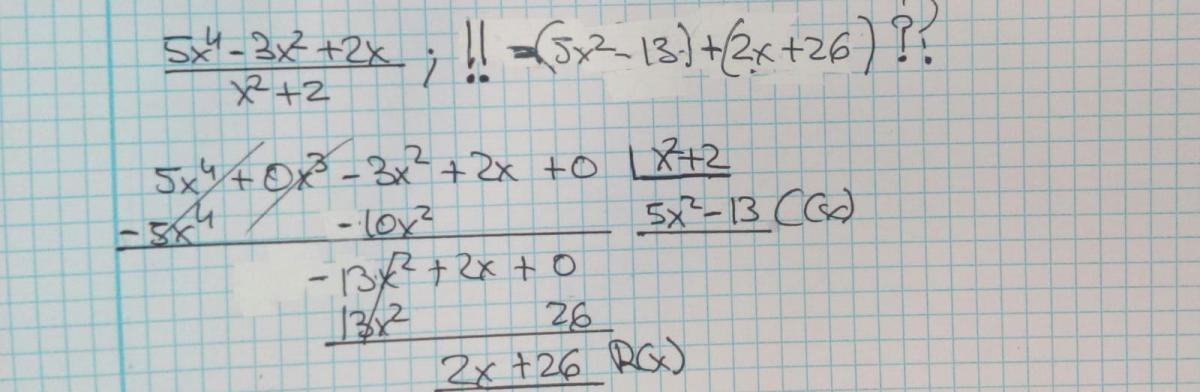 (5x⁴-3x²+2x)/(x²+2) ; !! -(5x²-13)+(2x+26) ??
5x⁴+0x³-3x²+2x+0 | x²+2
-5x⁴ -10x² 5x²-13 C(x)
-13x²+2x+0
13x² 26
2x+26 R(x)